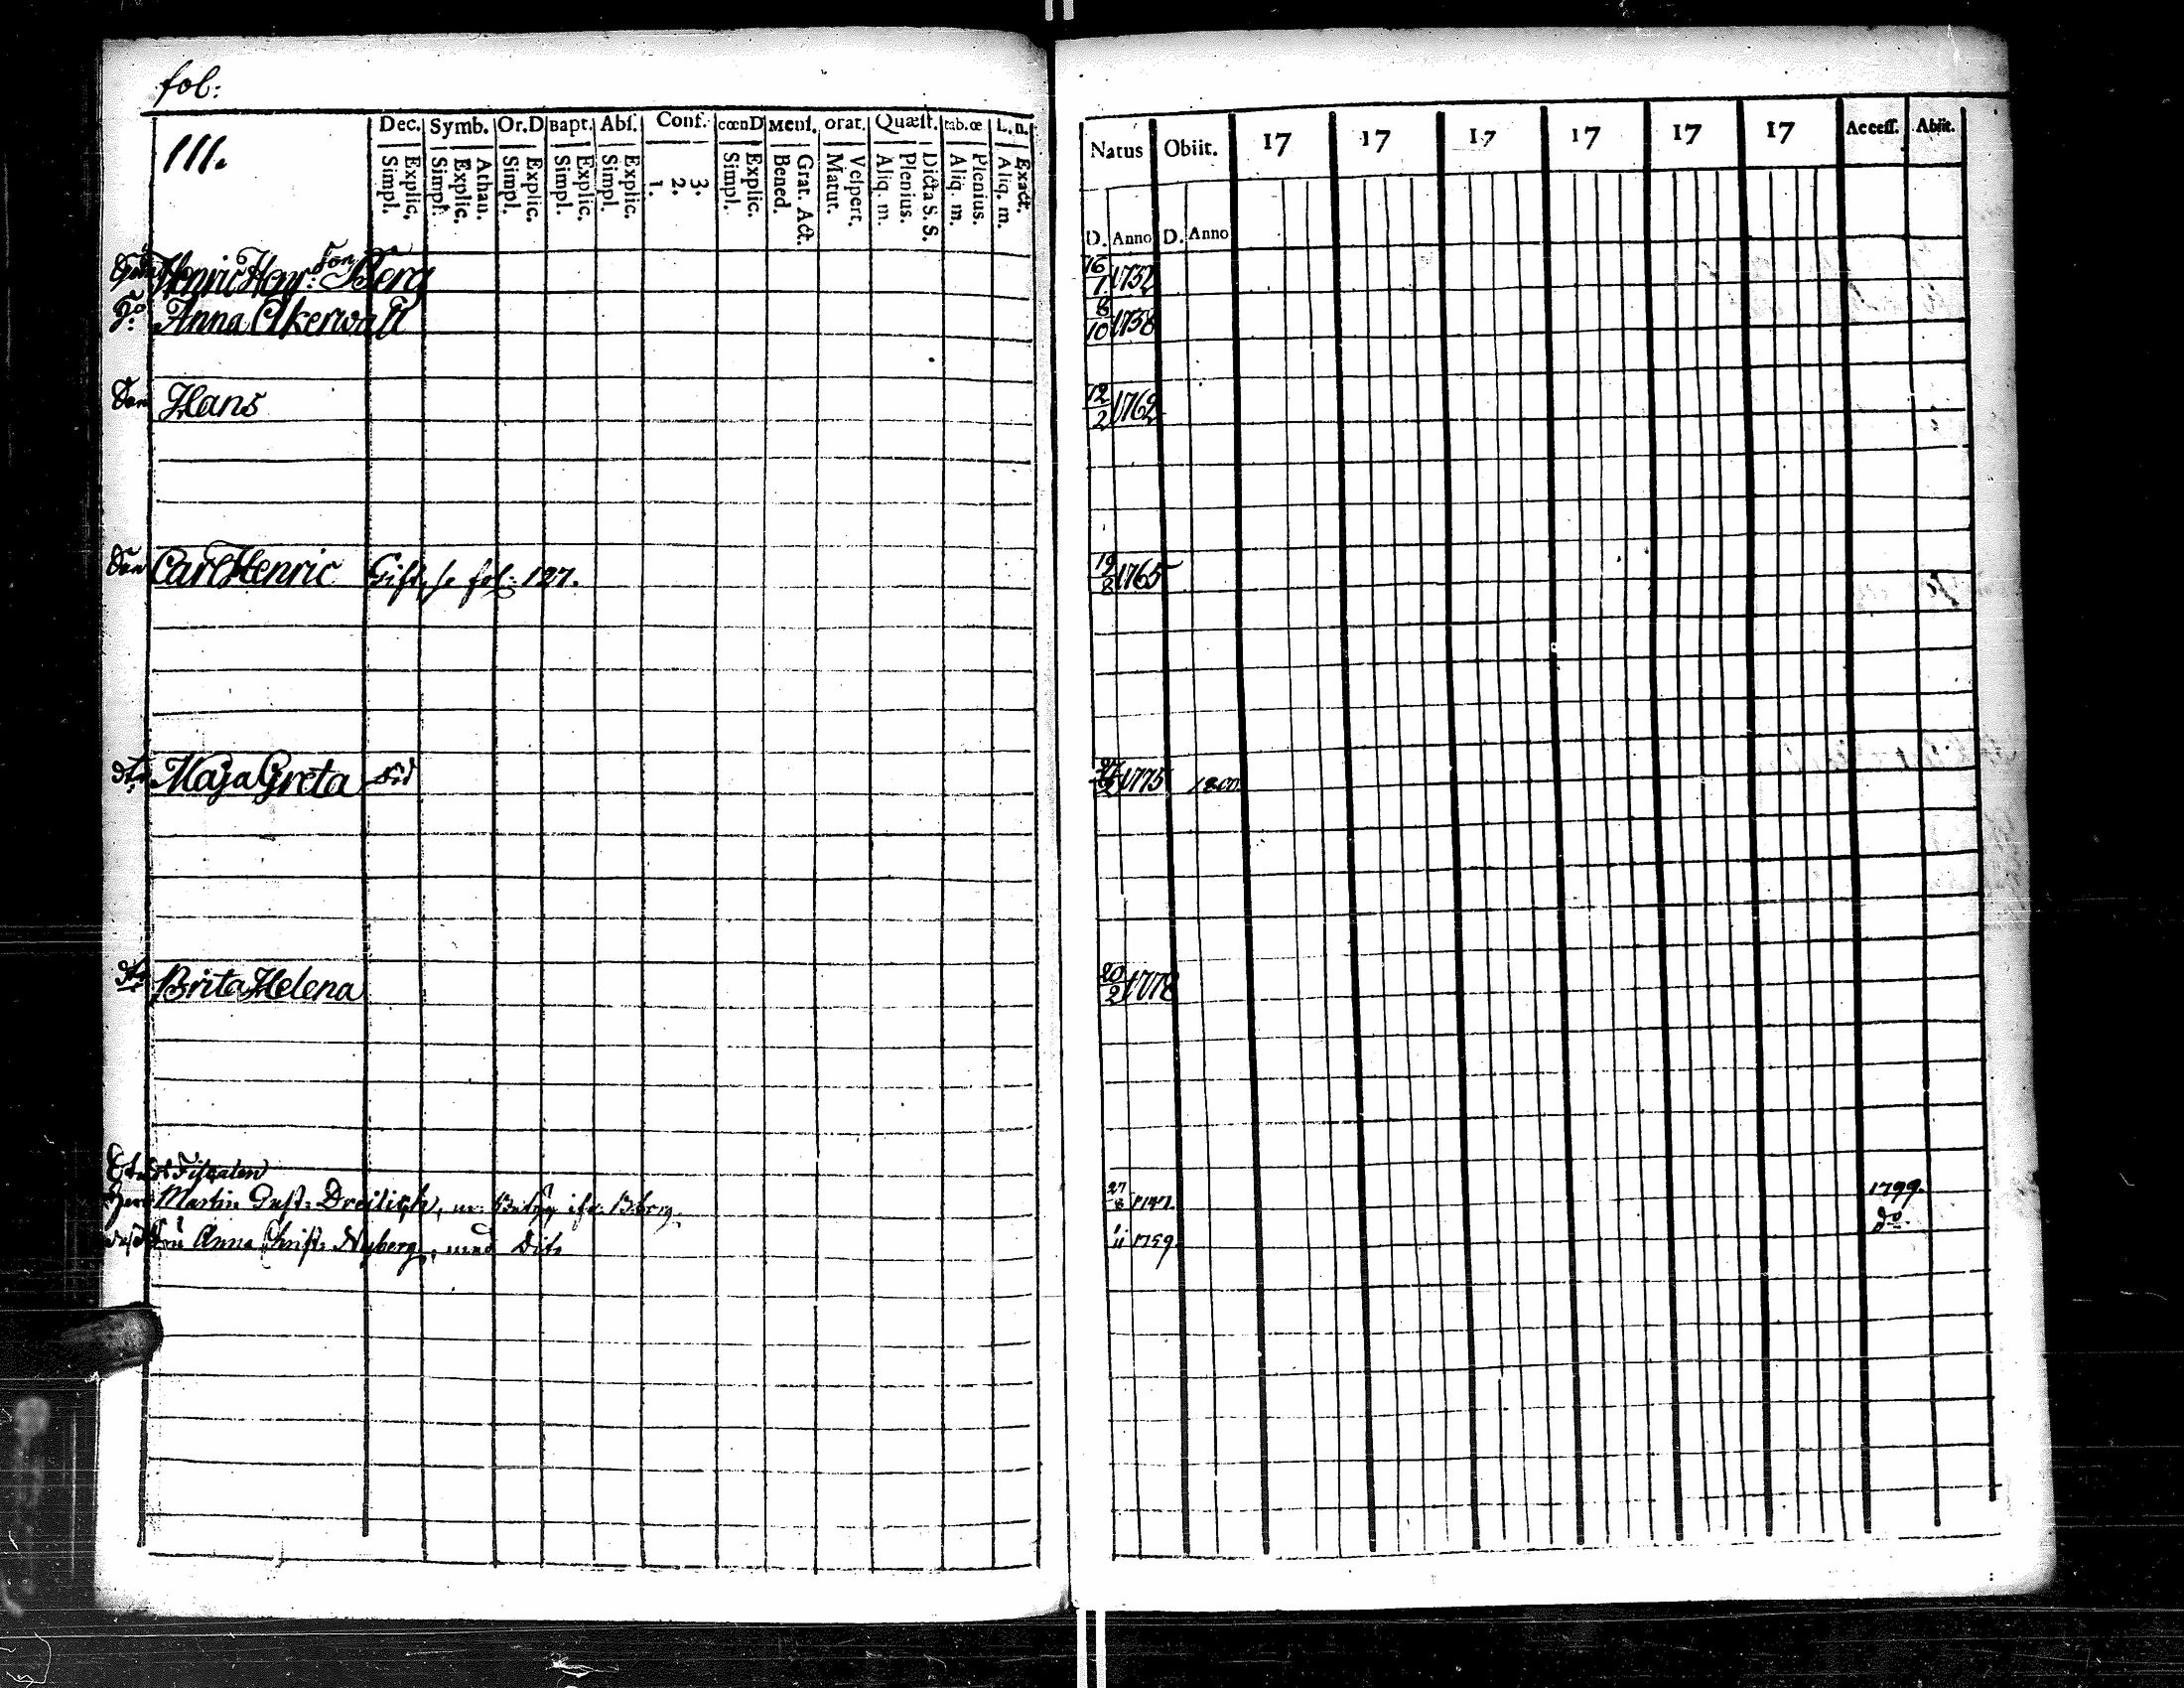 fol:
111.
Dec. Symb. Or.D Bapt. Abſ. Conf. cœnD Menſ. orat. Quæſt. tab.œ L.n.
Simpl. Explic. Simpl. Explic. Athan. Simpl. Explic. Simpl. Explic. Simpl. Explic. 1. 2. 3. Simpl. Explic. Bened. Grat. Act. Matut. Veſpert. Aliq. m. Plenius. Dicta S. S. Aliq. m. Plenius. Aliq. m. Exact.
Natus Obiit. 17 17 17 17 17 17 Acceſſ. Abiit.
D. Anno D. Anno
Henric Henr: Son Berg 16/1
Anna Åkerwall 8/10 1738
Son Hans 12/2 1762
Son Carl Henric Gift, se fol: 127. 19/8 1765
dr. Maja Greta 1775 1800
dr. Brita Helena 20/2 1778
Fiscalen
Herr Martin Gust: 27/8 1799.
Fru Anna Christ: Nyberg, med Dito 1/11 1759. do